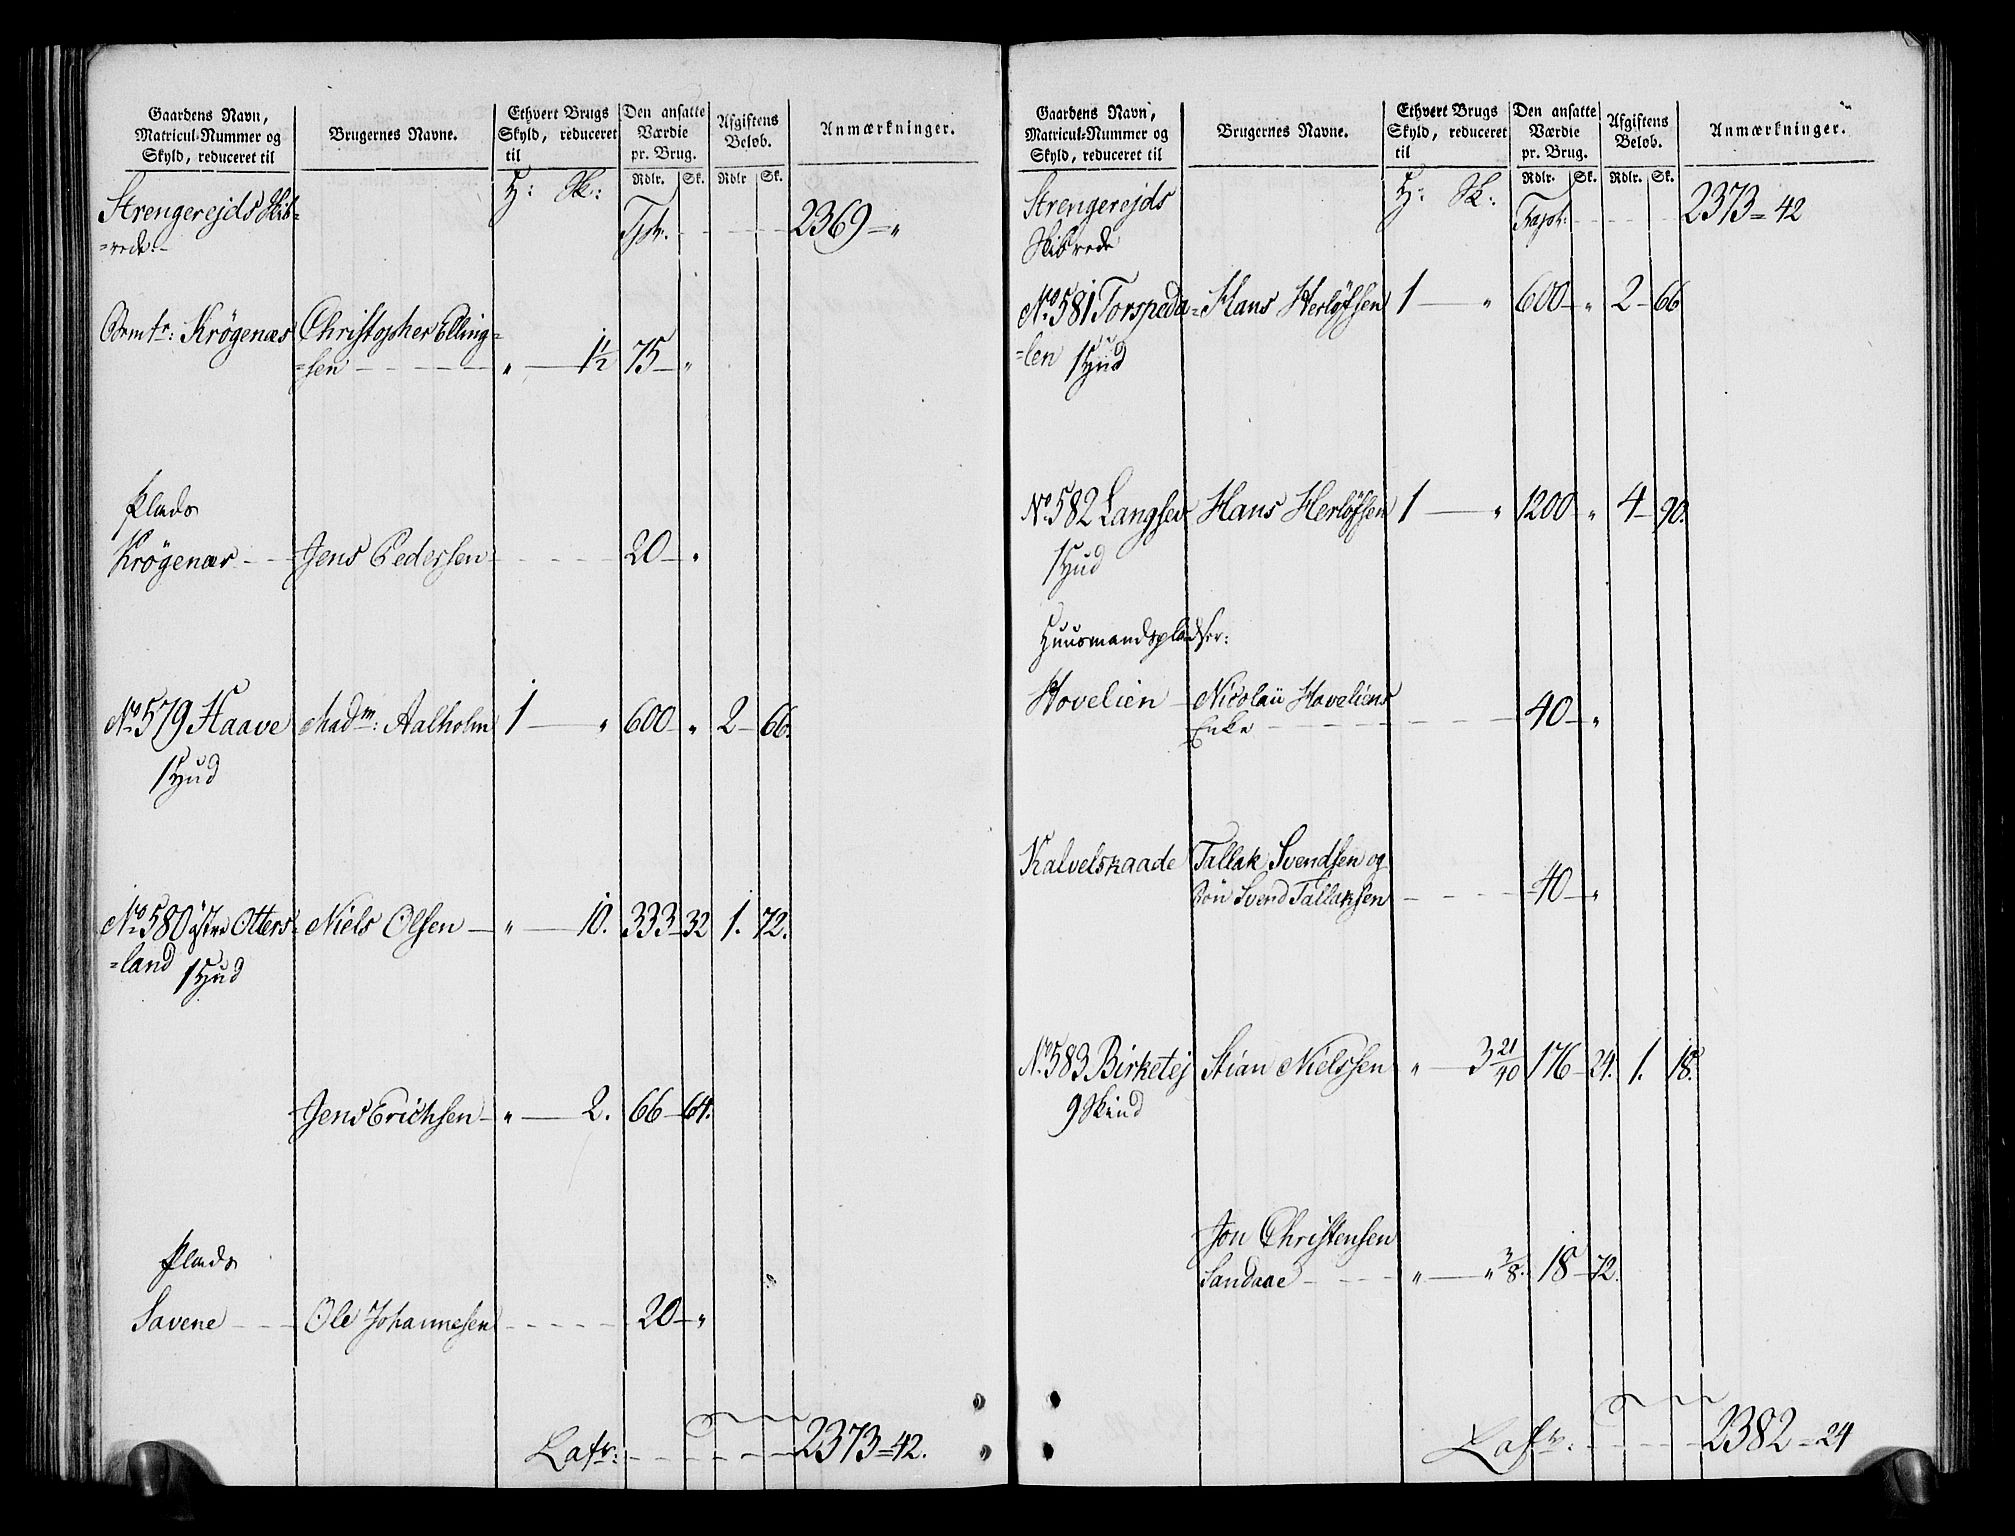 Gaardens Navn,
Matricul-Nummer og
Skyld, reduceret til
Brugernes Navne.
Ethvert Brugs
Skyld, reduceret
til
Den ansatte
Værdie
pr. Brug.
Afgiftens
Beløb.
Anmærkninger.
Rdlr. Sk. Rdlr Sk.
H: Sk:
Strengerejds Skib=
=rede.
Tspt. 2369 = "
Krøgenæs Christopher Elling=
=sen " 1½ 75 "
Plads
Krøgenæs Jens Pedersen 20 "
No 579 Haave Madm: Aalholm 1 " 600 " 2 66.
1 Hud
No 580 østre Otters= Niels Olsen " 10. 333 32 1. 72.
=land 1 Hud
Jens Erichsen " 2. 66 64.
Plads
Savene Ole Johannesen 20 "
Lats: 2373 = 42.
Gaardens Navn,
Matricul-Nummer og
Skyld, reduceret til
Brugernes Navne.
Ethvert Brugs
Skyld, reduceret
til
Den ansatte
Værdie
pr. Brug.
Afgiftens
Beløb.
Anmærkninger.
Rdlr. Sk. Rdlr. Sk.
H: Sk:
Strengerejds
Skibrede
Trspt: 2373 = 42
No 581 Torspeda= Hans Herløfsen 1 " 600 " 2 66
=len 1 Hud
No 582 Langsev Hans Herløfsen 1 " 1200 " 4 90.
1 Hud
Huusmandspladser:
Hovelien Nicolai Hoveliens
Enke 40 "
Kalvelskaade Tallak Svendsen og
Søn Svend Tallaksen 40 "
No 583 Birketej Stian Nielssen " 3 21/40 176 24. 1. 18.
9 Skind
Jon Christensen
Sandaae " " 3/8. 18 72.
Lats: 2382 = 24